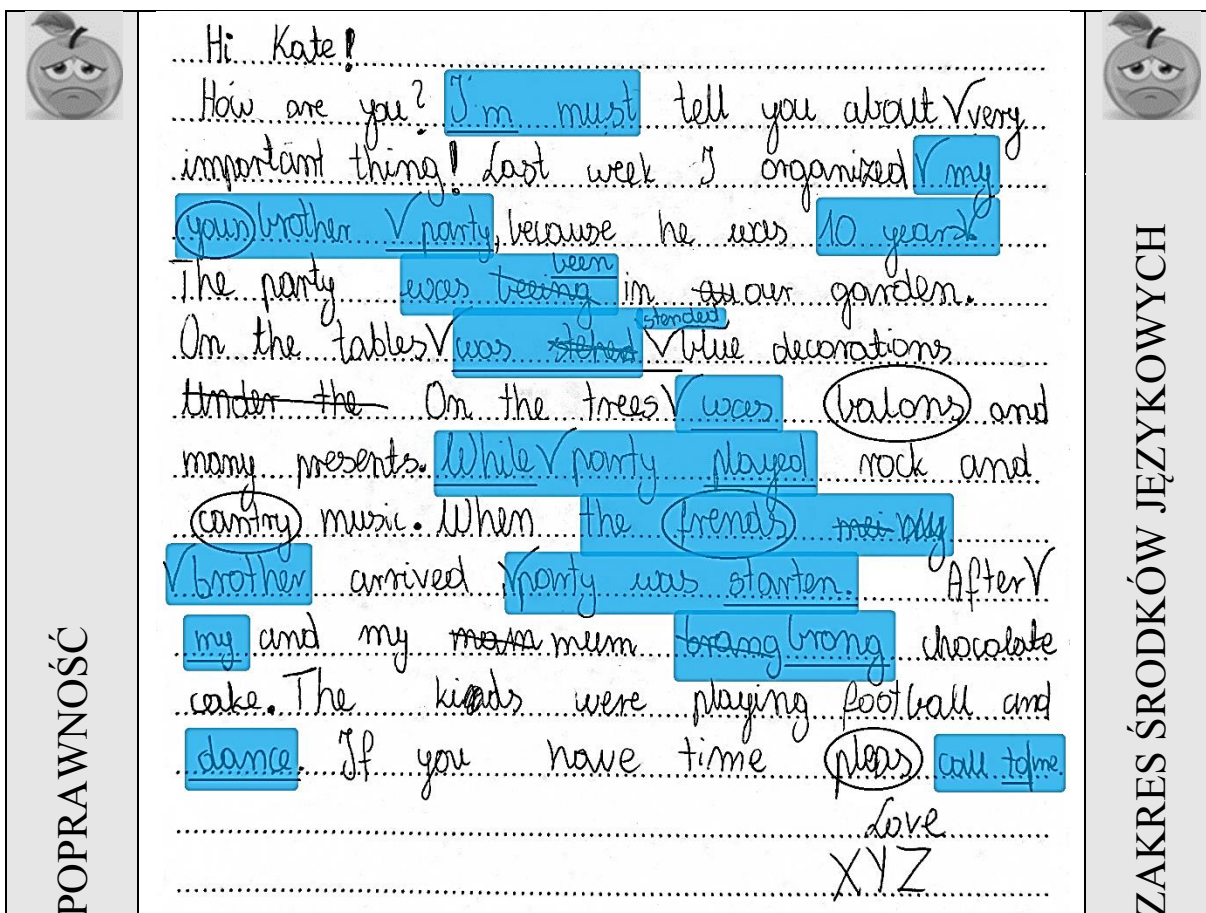 POPRAWNOŚĆ
Hi Kate!
How are you? I'm must tell you about V very
important thing! Last week I organized V my
youn brother V party, because he was 10 years V
The party was beeing been in our garden.
On the tables V was stended V blue decorations
Under the On the trees V was balons and
many presents. While V party played rock and
cantry music. When the frends my
V brother arrived V party was starten. After V
my and my mam mum brang brong chocolate
cake. The kids were playing football and
dance. If you have time pleas call to me.
Love
XYZ
ZAKRES ŚRODKÓW JĘZYKOWYCH